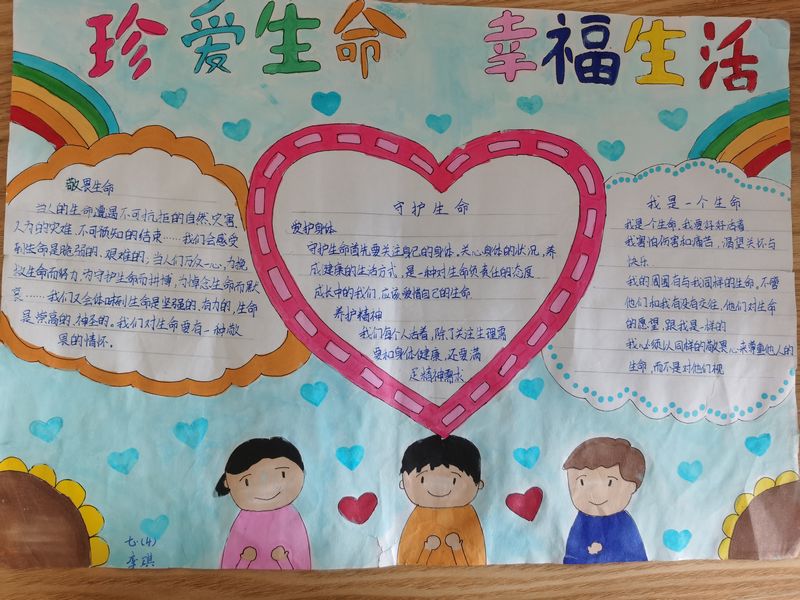 珍爱生命 幸福生活
敬畏生命
当人的生命遭遇不可抗拒的自然灾害、
人为的灾难、不可预知的结束……我们会感受
到生命是脆弱的、艰难的；当人们万众一心，为挽
救生命而努力，为守护生命而拼搏，为悼念生命而默
哀……我们又会体味到生命是坚强的、有力的，生命
是崇高的、神圣的。我们对生命要有一种敬
畏的情怀。
守护生命
爱护身体
守护生命首先要关注自己的身体。关心身体的状况，养
成健康的生活方式，是一种对生命负责任的态度
成长中的我们，应该爱惜自己的生命
养护精神
我们每个人活着，除了关注生理需
要和身体健康，还要满
足精神需求
我是一个生命
我是个生命，我要好好活着
我害怕伤害和痛苦，渴望关怀与
快乐
我的周围有与我同样的生命。不管
他们和我有没有交往，他们对生命
的愿望跟我是一样的
我必须以同样的敬畏心来尊重他人的
生命，而不是对他们视
七.(4)
李琪